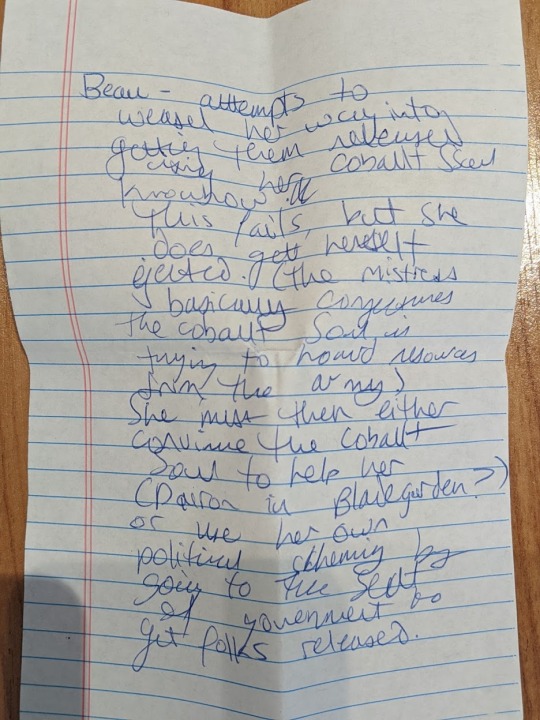 Beau - attempts to
weasel her way into
getting them released
using her cobalt Soul
knowhow.
This fails, but she
does gett herself
ejected. (the mistress
basically conjectures
the cobalt Soul is
trying to hoard resources
from the army)
She must then either
convince the Cobalt
Soul to help her
(Dairon in Bladegarden?)
or use her own
political scheming by
goin to the Seat
of government to
get folks released.